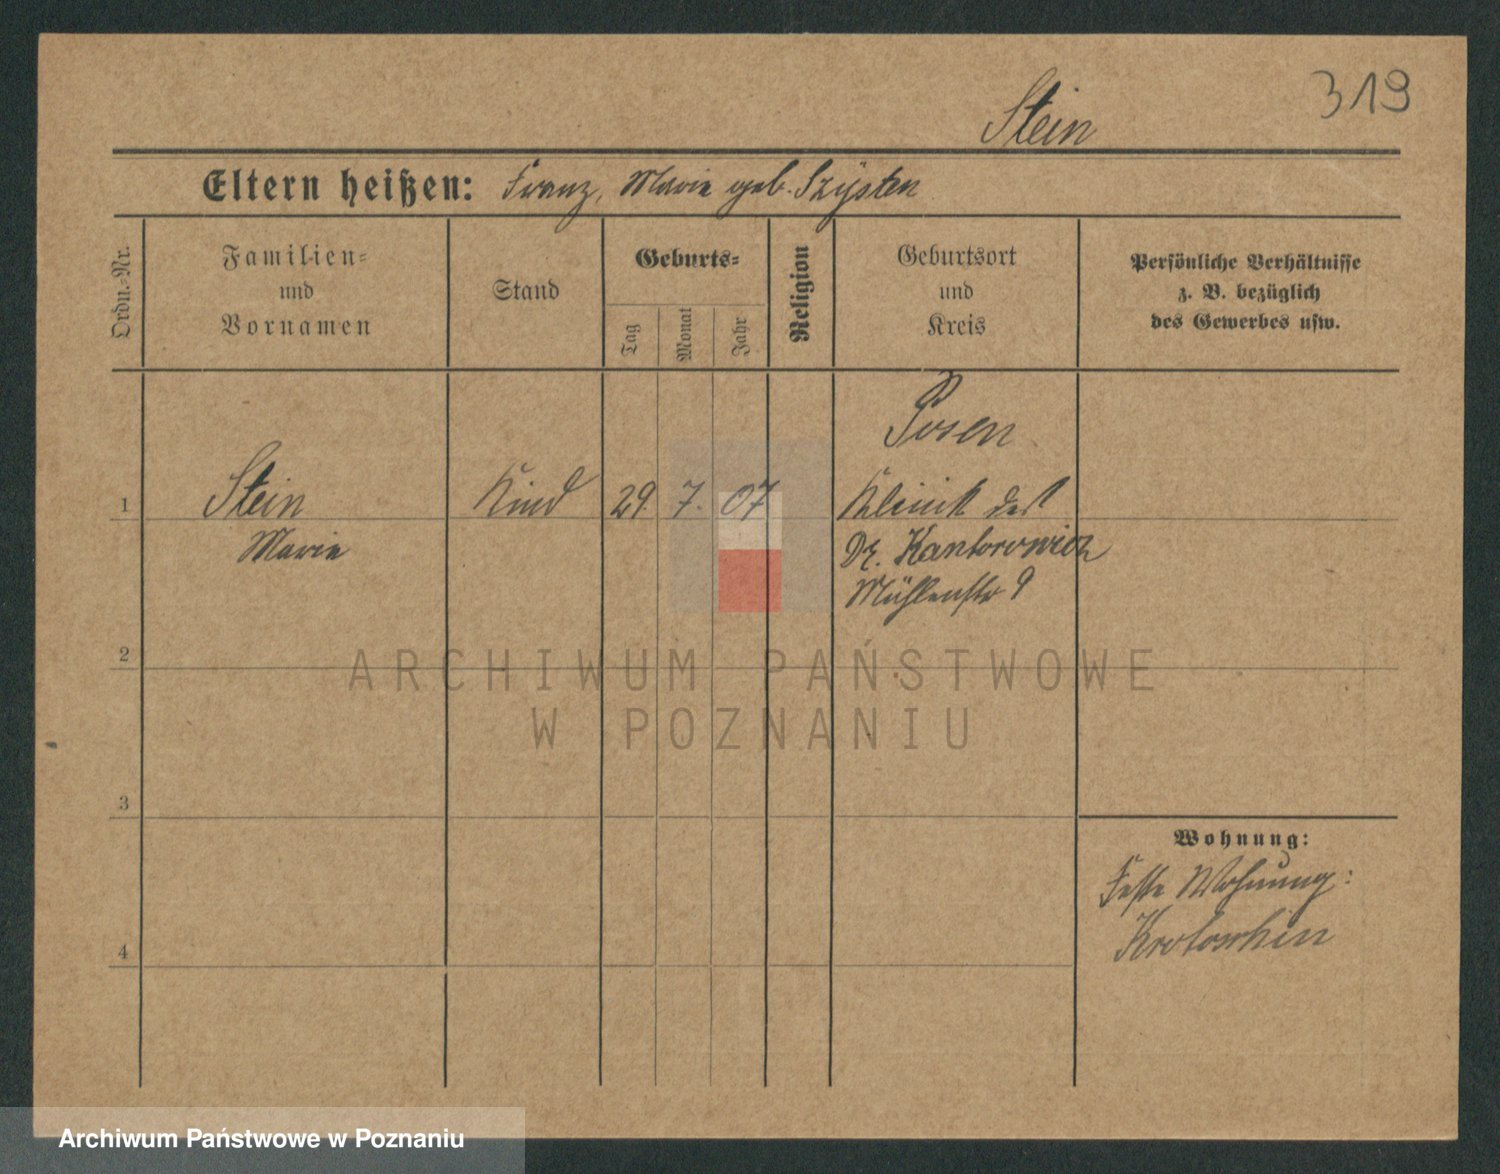 319
Stein
Eltern heißen: Franz, Marie geb. Szysten
Ordn.-Nr.
Familien-
und
Vornamen
Stand
Geburts-
Tag
Monat
Jahr
Religion
Geburtsort
und
Kreis
Persönliche Verhältnisse
z. B. bezüglich
des Gewerbes usw.
Posen
1 Stein Kind 29. 7. 07 Klinik des
Marie Dr. Kantorowicz
Mühlenstr 9
2
3
Wohnung:
Feste Wohnung:
Krotoschin
4
ARCHIWUM PAŃSTWOWE
W POZNANIU
Archiwum Państwowe w Poznaniu